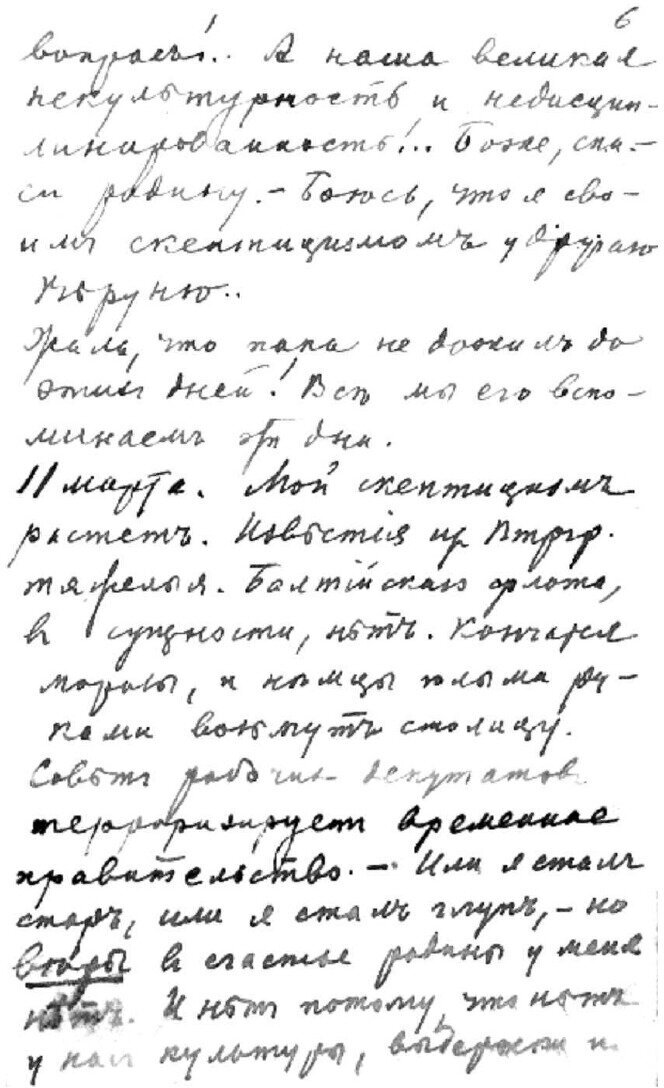 6
вопросъ!.. А наша великая
некультурность и недисцип-
линированность!.. Боже, спа-
си родину. – Боюсь, что я сво-
имъ скептицизмомъ удручаю
Вѣруню..
Жаль, что папа не дожилъ до
этихъ дней! Всѣ мы его вспо-
минаемъ эти дни.
11 марта. Мой скептицизмъ
растетъ. Извѣстія из Птргр.
тяжелыя. Балтійскаго флота,
въ сущности, нѣтъ. Кончатся
морозы, и нѣмцы голыми ру-
ками возьмутъ столицу.
Совѣтъ рабочихъ депутатовъ
терроризируетъ временное
правительство. – Или я сталъ
старъ, или я сталъ глупъ, – но
вѣры въ счастье родины у меня
нѣтъ. И нѣтъ потому, что нѣтъ
у насъ культуры, выдержки и